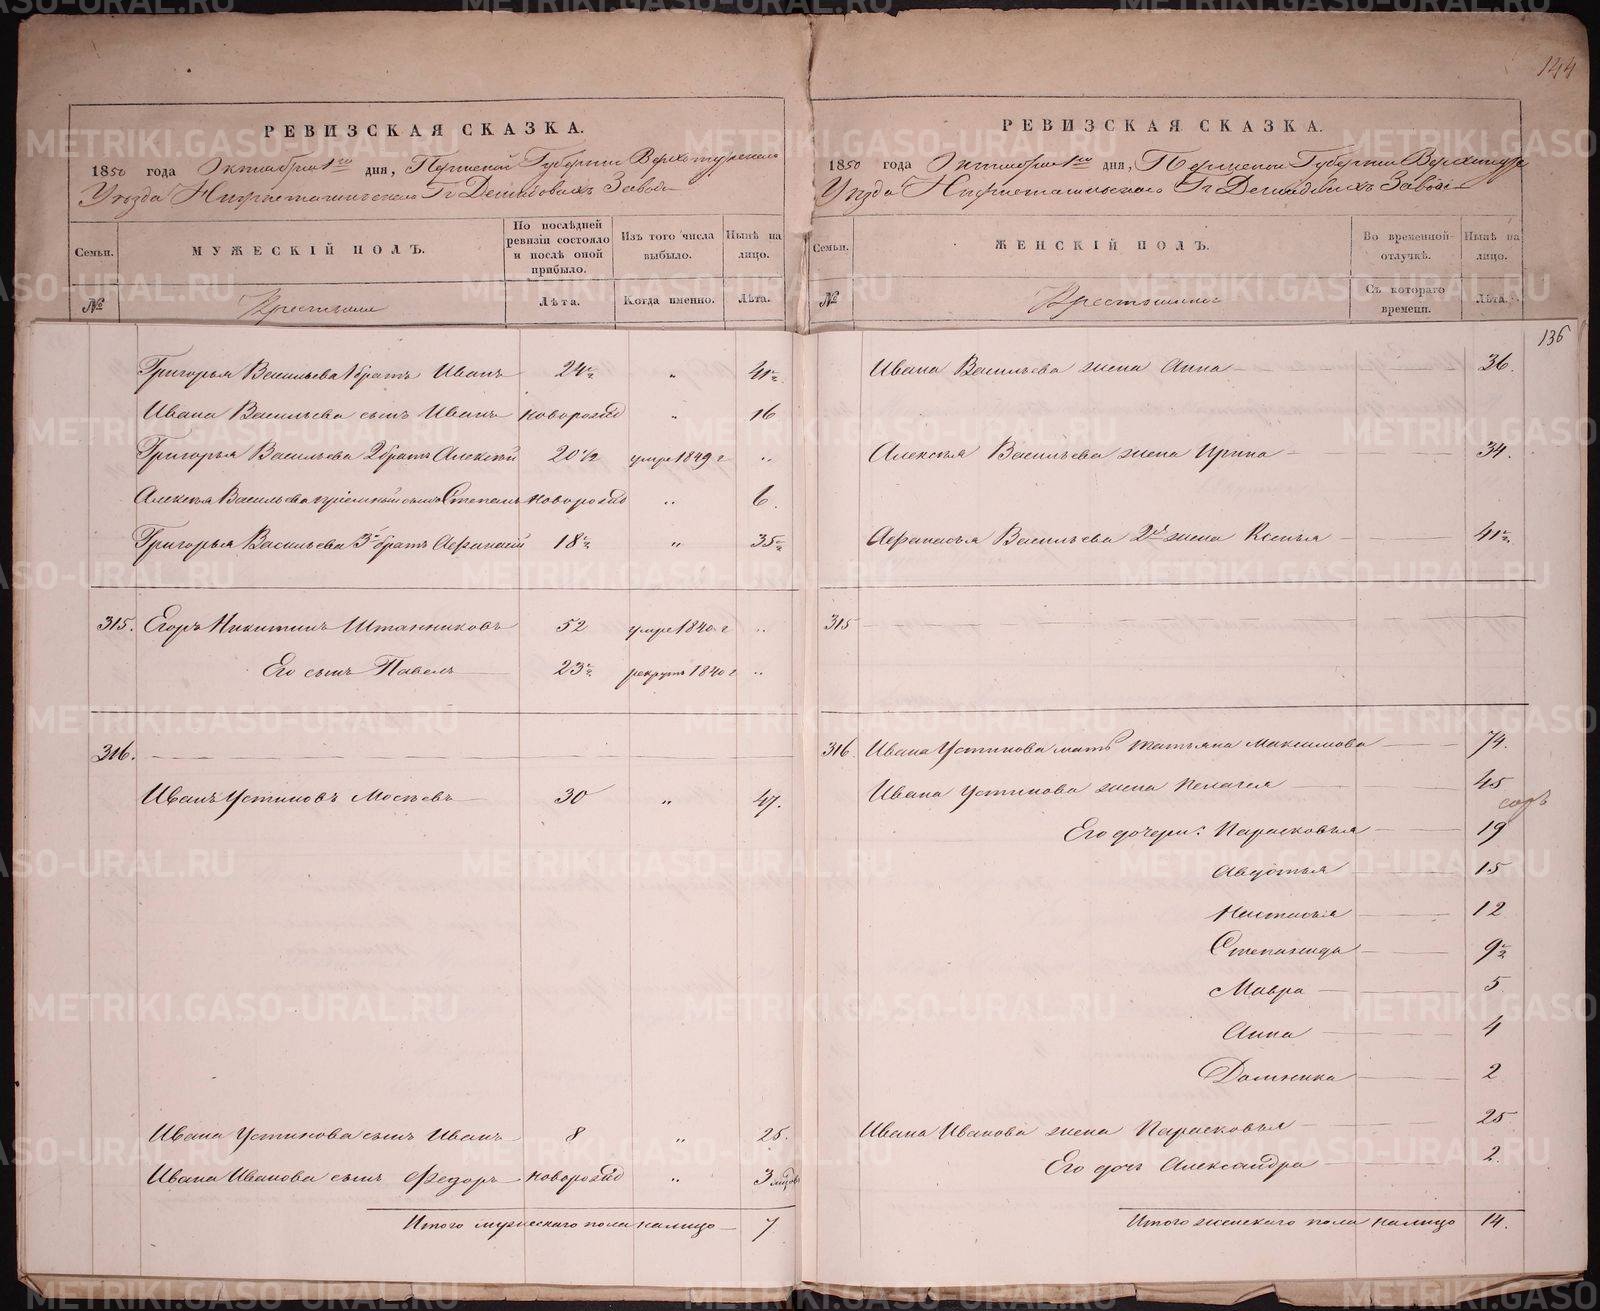 144
РЕВИЗСКАЯ СКАЗКА.
1850 года Октября 1го дня, Пермской Губернии Верхотурскаго
Уезда Нижнетагильскаго Гг Демидовыхъ Завода
Семьи. МУЖЕСКІЙ ПОЛЪ. По послѣдней ревизіи состояло и послѣ оной прибыло. Изъ того числа выбыло. Нынѣ на лицо.
№ Крестьяне Лѣта. Когда именно. Лѣта.
Григорья Васильева 1 братъ Иванъ 24½ " 41½
Ивана Васильева сынъ Иванъ новорожд " 16
Григорья Васильева 2 братъ Алексѣй 20½ умре 1849 г "
Алексѣя Васильева пріемный сынъ Степанъ новорожд " 6.
Григорья Васильева 3й братъ Афанасій 18½ " 35½
315. Егоръ Никитинъ Штанниковъ 52 умре 1840 г "
Его сынъ Павелъ 23½ рекрутъ 1840 г "
316.
Иванъ Устиновъ Мосѣевъ 30 " 47.
Ивана Устинова сынъ Иванъ 8 " 25.
Ивана Иванова сынъ Федоръ новорожд " 3 мѣсяц
Итого мужескаго пола налицо 7
РЕВИЗСКАЯ СКАЗКА.
1850 года Октября 1го дня, Пермской Губерніи Верхотурс
Уезда Нижнетагильскаго Гг Демидовыхъ Завода
Семьи. ЖЕНСКІЙ ПОЛЪ. Во временной отлучкѣ. Нынѣ на лицо.
№ Крестьянки Съ котораго времени. Лѣта.
136
Ивана Васильева жена Анна 36.
Алексѣя Васильева жена Ирина 34.
Афанасья Васильева 2я жена Ксенья 41½
315
316 Ивана Устинова мать Татьяна Максимова 74.
Ивана Устинова жена Пелагея 45
Его дочери: Парасковья 19
Авдотья 15
Настасья 12
Степанида 9½
Мавра 5
Анна 4
Домника 2
Ивана Иванова жена Парасковья 25
Его дочь Александра 2.
Итого женскаго пола налицо 14.
METRIKI.GASO-URAL.RU